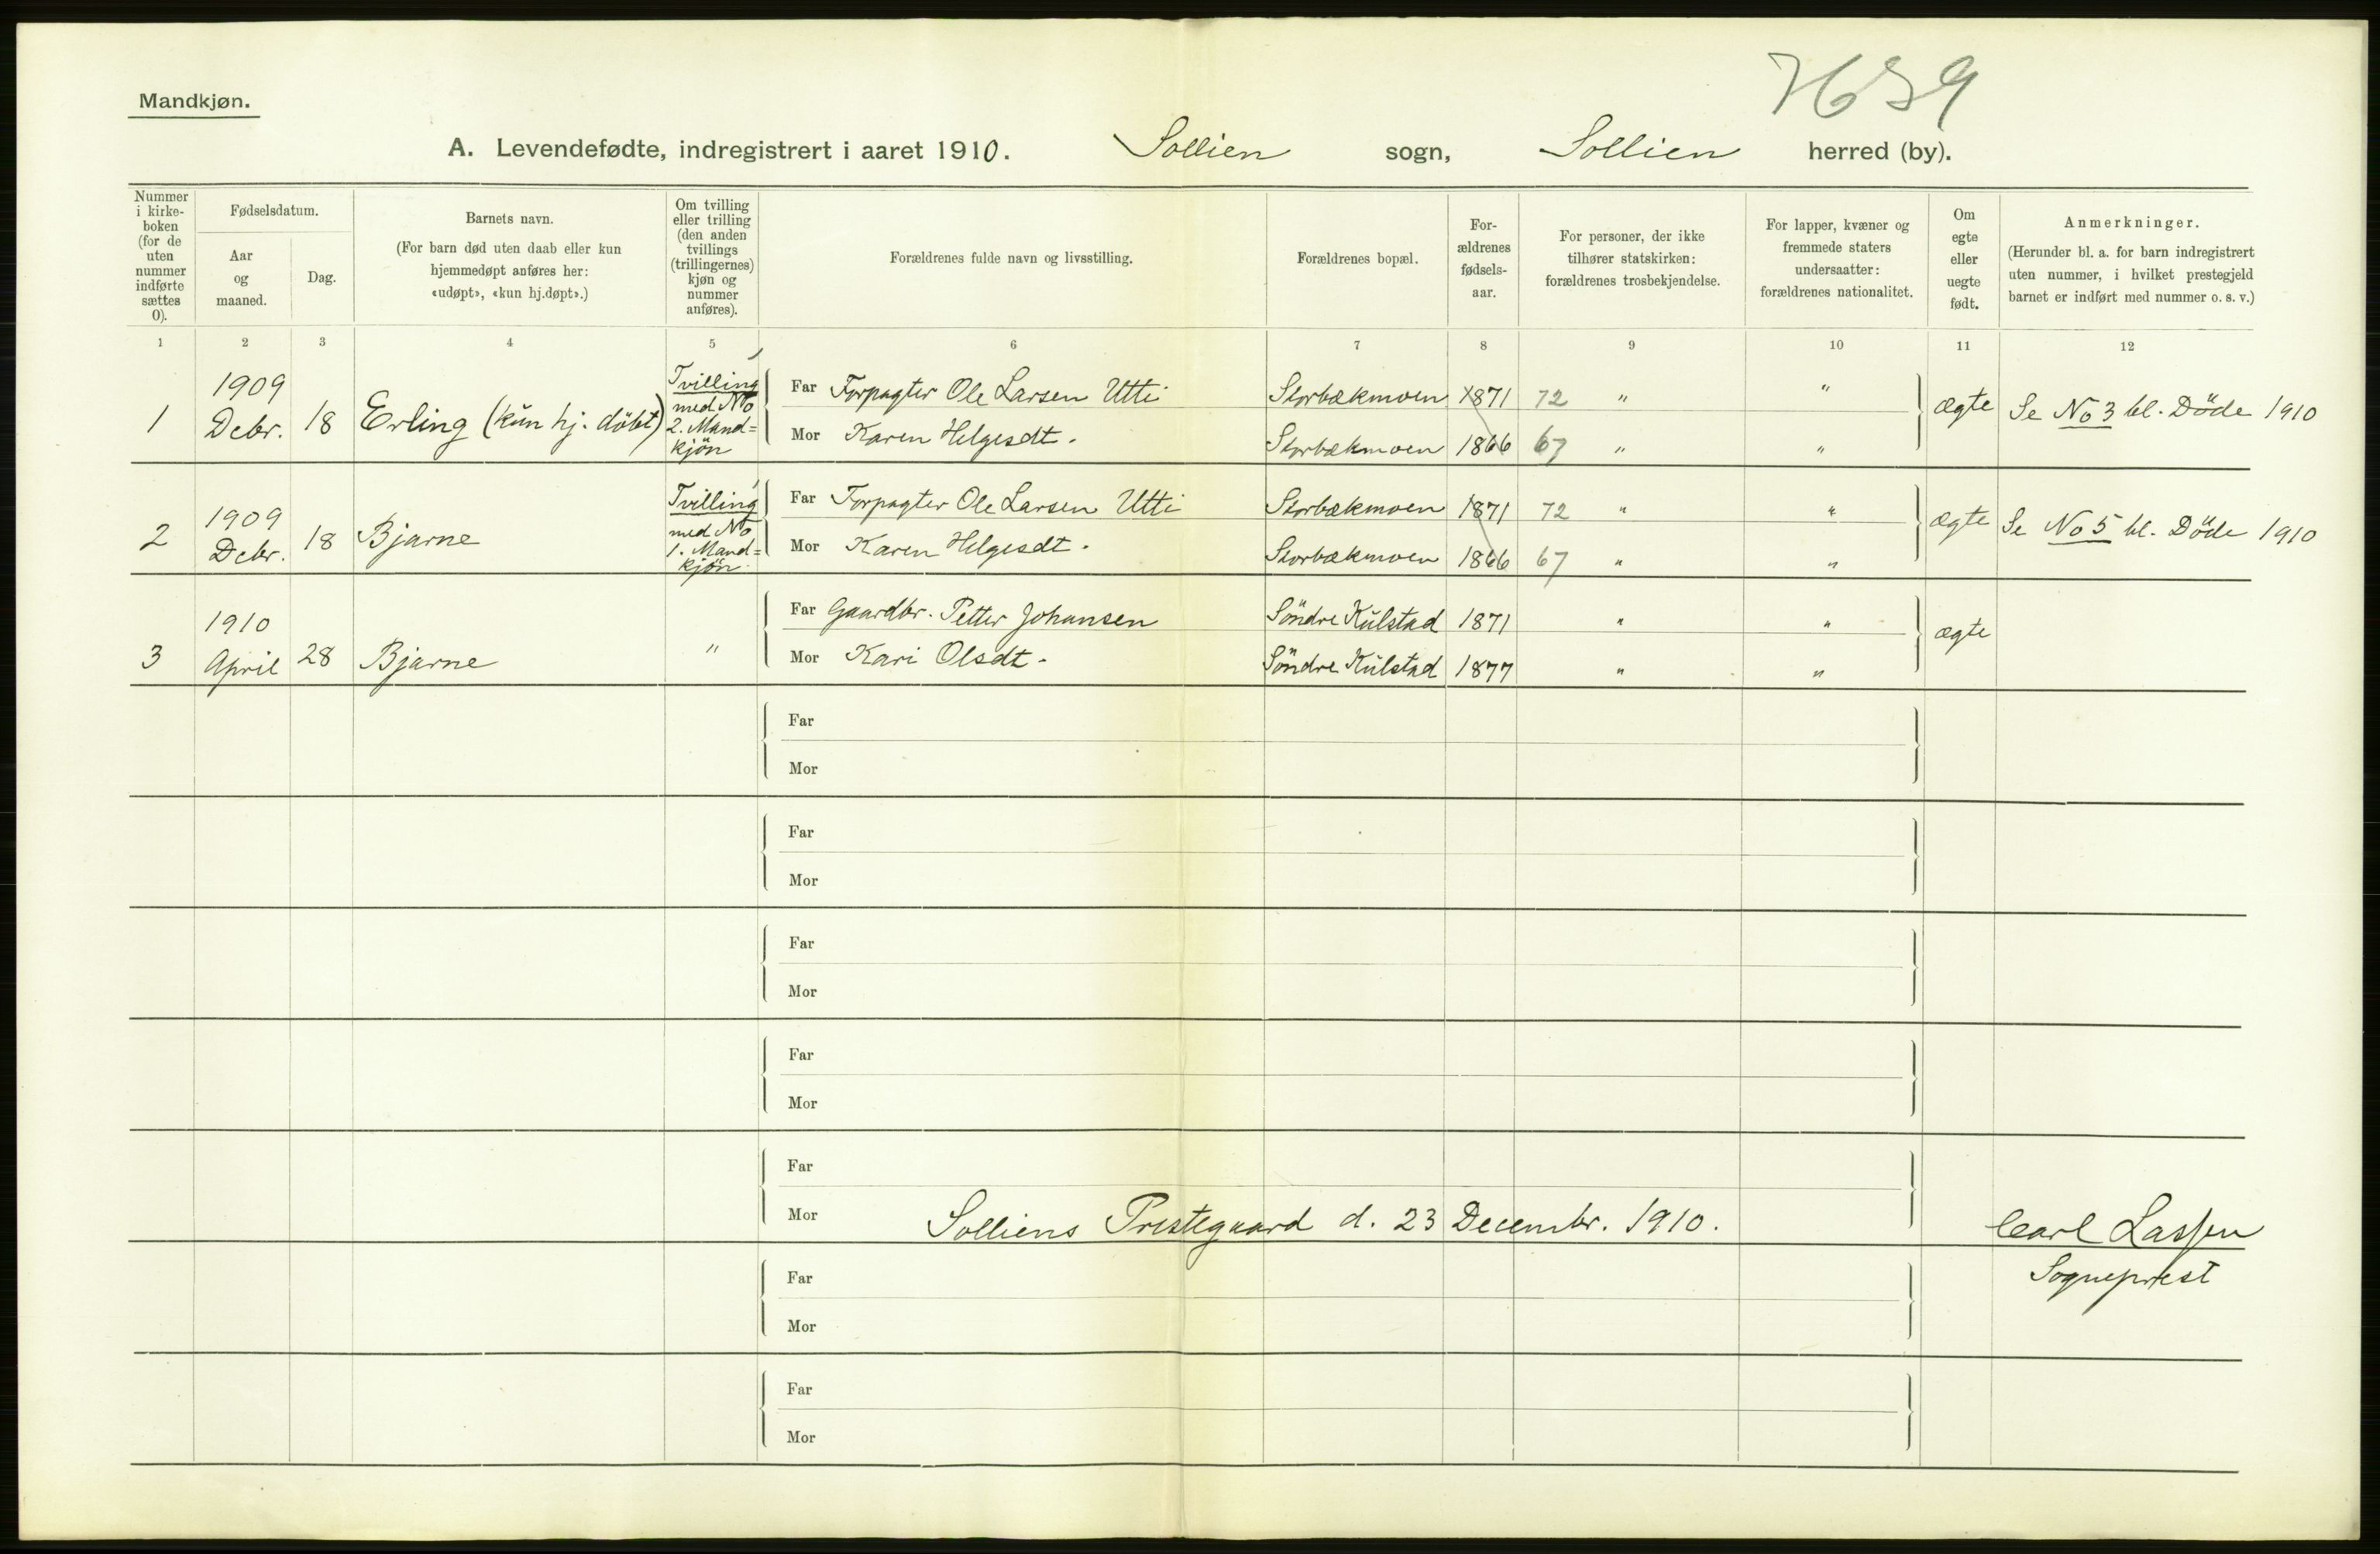 7639
Mandkjøn.
A. Levendefødte, indregistrert i aaret 1910. Sollien sogn, Sollien herred (by).
Nummer i kirke- boken (for de uten nummer indførte sættes 0).
Fødselsdatum.
Aar og maaned.
Dag.
Barnets navn.
(For barn død uten daab eller kun
hjemmedøpt anføres her:
«udøpt», «kun hj.døpt».)
Om tvilling
eller trilling
(den anden
tvillings
(trillingernes)
kjøn og
nummer
anføres).
Forældrenes fulde navn og livsstilling.
Forældrenes bopæl.
For-
ældrenes
fødsels-
aar.
For personer, der ikke
tilhører statskirken:
forældrenes trosbekjendelse.
For lapper, kvæner og
fremmede staters
undersaatter:
forældrenes nationalitet.
Om
egte
eller
uegte
født.
Anmerkninger.
(Herunder bl. a. for barn indregistrert
uten nummer, i hvilket prestegjeld
barnet er indført med nummer o. s. v.)
1 2 3 4 5 6 7 8 9 10 11 12
1 1909 Debr. 18 Erling (kun hj. döbt)
Tvilling
med No
2. Mand=
kjön
Far Forpagter Ole Larsen Utti Storbækmoen 1871 72 " "
Mor Karen Helgesdt. Storbækmoen 1866 67 " "
ægte Se No 3 bl. Döde 1910
2 1909 Debr. 18 Bjarne
Tvilling
med No
1. Mand=
kjön.
Far Forpagter Ole Larsen Utti Storbækmoen 1871 72 " "
Mor Karen Helgesdt. Storbækmoen 1866 67 " "
ægte Se No 5 bl. Döde 1910
3 1910 April 28 Bjarne "
Far Gaardbr. Petter Johansen Söndre Kulstad 1871 " "
Mor Kari Olsdt. Söndre Kulstad 1877 " "
ægte
Far
Mor
Far
Mor
Far
Mor
Far
Mor
Far
Mor Solliens Prestegaard d. 23 Decembr. 1910. Carl Lassen
Sogneprest
Far
Mor
Far
Mor